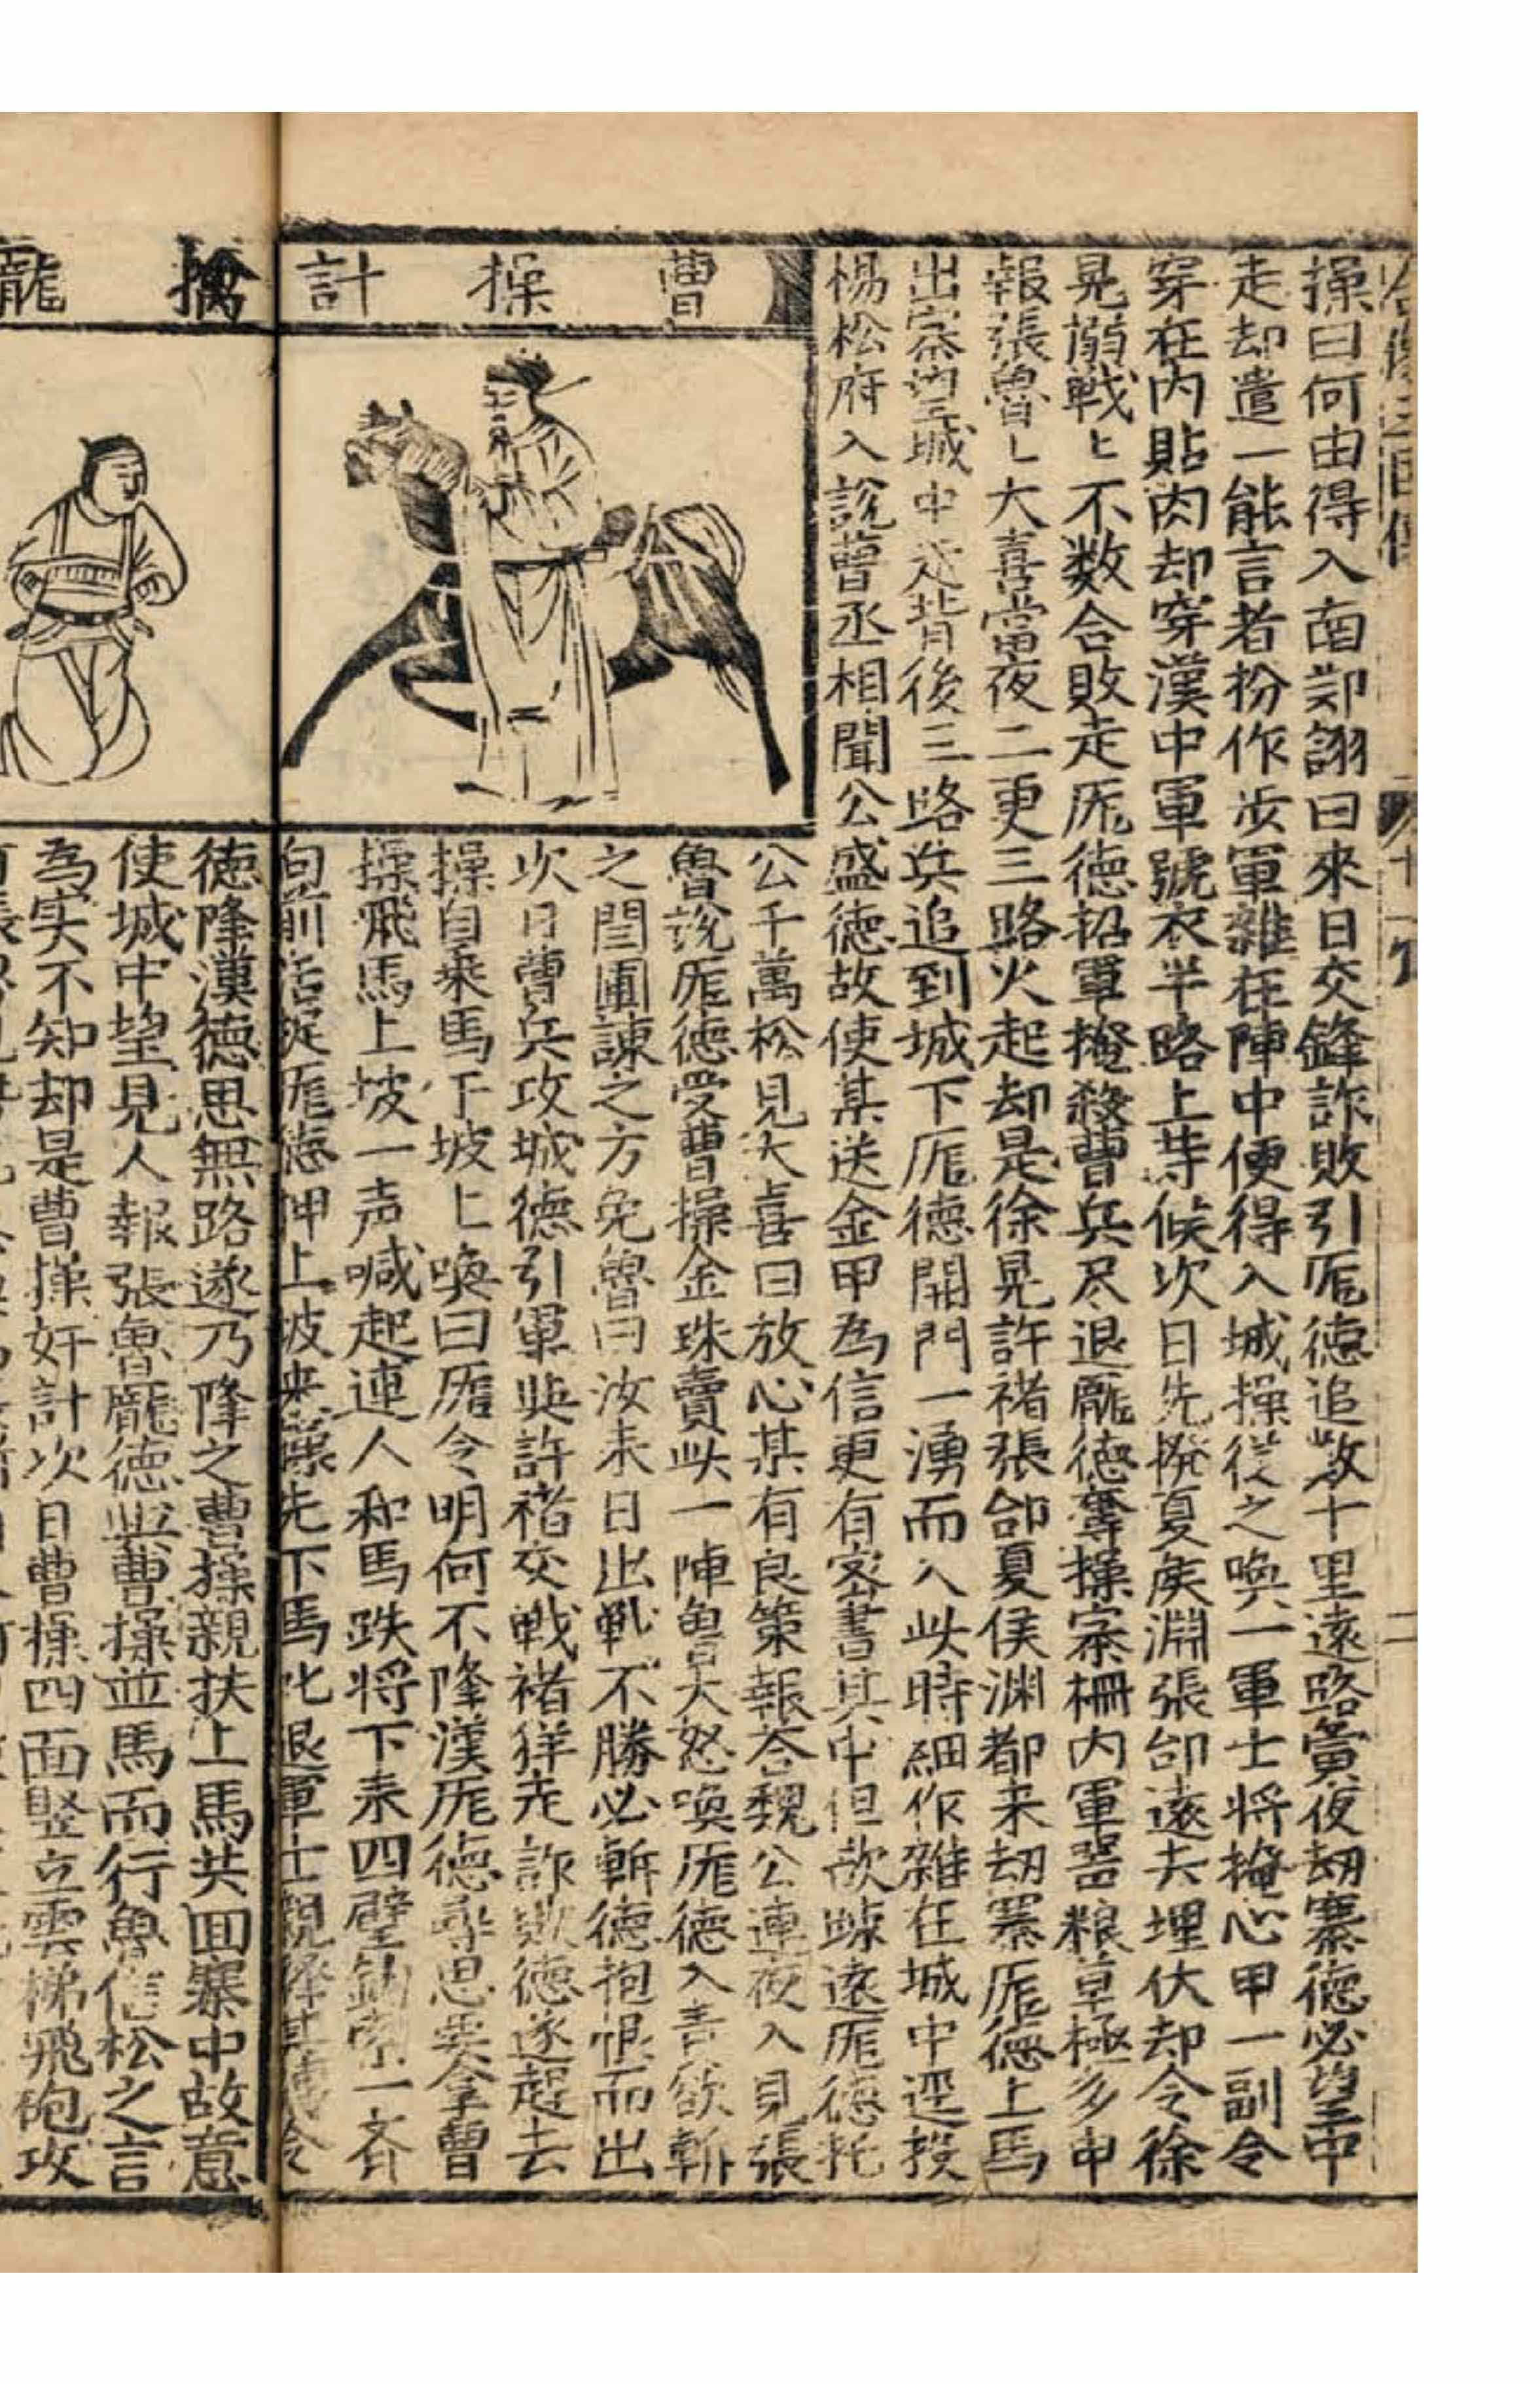 操曰何由得入南郑詡曰來日交鋒詐敗引厐德追数十里遠路寅夜刼寨德必望中
走却遣一能言者扮作步軍雜在陣中便得入城操從之喚一軍士将掩心甲一副令
穿在内貼肉却穿漢中軍號衣半路上䓁候次日先撥夏矦淵張郃遠去埋伏却令徐
晃搦戦〻不数合敗走厐德招軍掩殺曹兵尽退龐德奪操寨柵内軍噐粮草極多申
報張魯〻大喜當夜二更三路火起却是徐晃許褚張郃夏侯渊都来刼寨厐德上馬
出寨望城中走背後三路兵追到城下厐德開門一湧而入此時細作雜在城中逕投
楊松府入說曹丞相聞公盛德故使某送金甲為信更有密書其中但欲踈遠厐德托
公千萬松見大喜曰放心某有良策報荅魏公連夜入見張
魯說厐德受曹操金珠賣此一陣魯大怒喚厐德入責欲斬
之閻圃諫之方免魯曰汝来日出戰不勝必斬德抱恨而出
次日曹兵攻城德引軍與許褚交戦褚徉走詐敗德遂赶去
操自乘馬于坡上喚曰厐令明何不降漢厐德尋思要拿曹
操飛馬上坡一声喊起連人和馬跌将下来四壁鈎索一齐
向前活捉厐德押上坡来操先下馬叱退軍士親釋其縛令
曹操計擒龐
德降漢德思無路遂乃降之曹操親扶上馬共回寨中故意
使城中望見人報張魯龐德與曹操並馬而行魯信松之言
為实不知却是曹操奸計次日曹操四面竪立雲梯飛砲攻